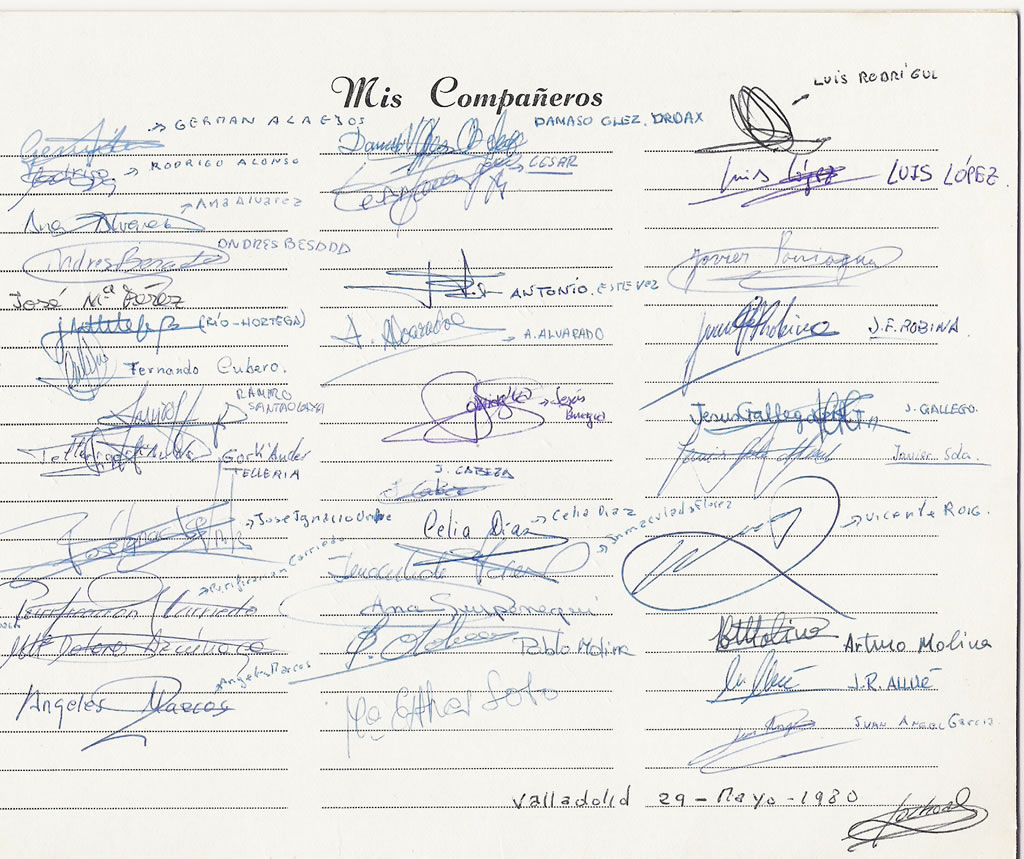 Mis Compañeros
GERMAN ALAEJOS
RODRIGO ALONSO
Ana Alvarez
Ana Alvarez
ANDRES BESADA
José Mª Pérez
(RÍO-HORTEGA)
Fernando Cubero.
RAMIRO
SANTAOLAYA
Gork'Ander
TELLERIA
Jose Ignacio
Purificacion Carriedo
Purificación Carriedo
Mª Dolores
Angeles Marcos
Angeles Marcos
DAMASO GLEZ. ORDAX
CESAR
ANTONIO ESTEVEZ
A. Alvarado
A. ALVARADO
Jesús
J. CABEZA
J. Cabeza
Celia Díaz
Celia Diaz
Inmaculada Florez
Inmaculada Florez
Ana
Pablo Molina
Mª Esther Soto
LUIS RODRÍGUL
Luis López
LUIS LÓPEZ.
Javier Paniagua
J.F. ROBINA.
Jesus Gallego
J. GALLEGO.
Javier Sola.
VICENTE ROIG.
Arturo Molina
J.R. ALLUÉ
JUAN ANGEL García
Valladolid 29-Mayo-1980